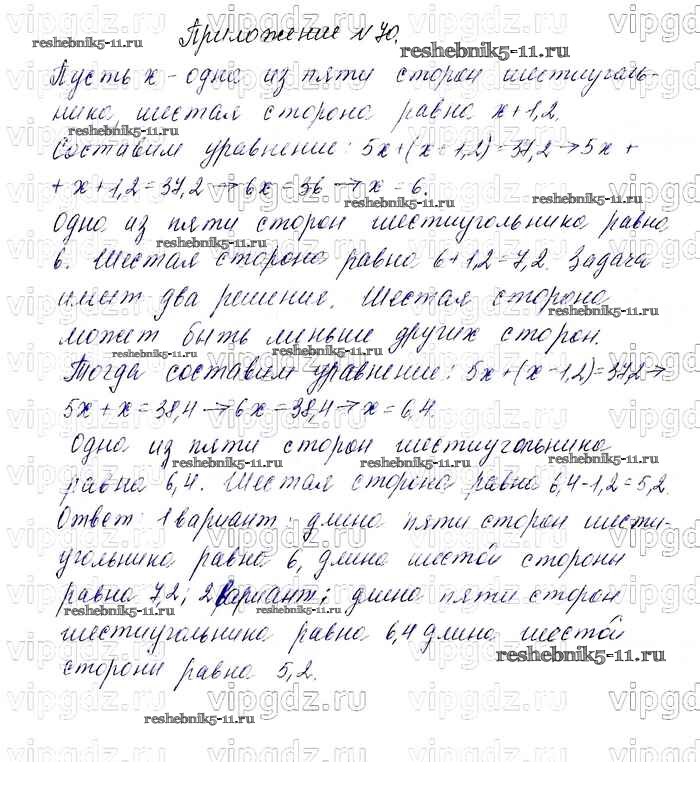 Приложение №70.
reshebnik5-11.ru
Пусть x - одна из пяти сторон шестиуголь-
ника, шестая сторона равна x+1,2.
Составим уравнение: 5x+(x+1,2)=37,2→5x+
+x+1,2=37,2→6x=36→x=6.
Одна из пяти сторон шестиугольника равна
6. Шестая сторона равна 6+1,2=7,2. Задача
имеет два решения. Шестая сторона
может быть меньше других сторон.
Тогда составим уравнение: 5x+(x-1,2)=37,2→
5x+x=38,4→6x=38,4→x=6,4.
Одна из пяти сторон шестиугольника
равна 6,4. Шестая сторона равна 6,4-1,2=5,2.
Ответ: 1 вариант: длина пяти сторон шести-
угольника равна 6, длина шестой стороны
равна 7,2; 2 вариант: длина пяти сторон
шестиугольника равна 6,4 длина шестой
стороны равна 5,2.
reshebnik5-11.ru
vipgdz.ru